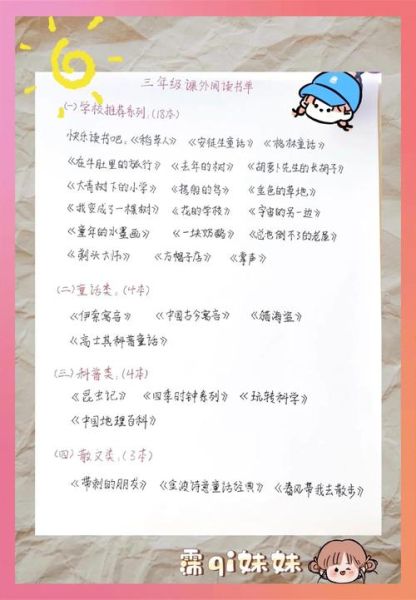 三年级课外阅读书单
(一)学校推荐系列:(18本)
快乐读书吧:《稻草人》 《安徒生童话》 《格林童话》
《在牛肚里的旅行》 《去年的树》 《胡萝卜先生的长胡子》
《大青树下的小学》 《搭船的鸟》 《金色的草地》
《我变成了一棵树》 《花的学校》 《宇宙的另一边》
《童年的水墨画》 《一块奶酪》 《总也倒不了的老屋》
《剃头大师》 《方帽子店》 《掌声》
(二)童话类:(4本)
《伊索寓言》 《中国古今寓言》 《晴海盗》
《高士其科普童话》
(三)科普类:(4本)
《昆虫记》 《四季时钟系列》 《玩转科学》
《中国地理百科》
(四)散文类:(3本)
《带刺的朋友》 《金波诗意童话经典》 《春风带我去散步》
霈qi妹妹